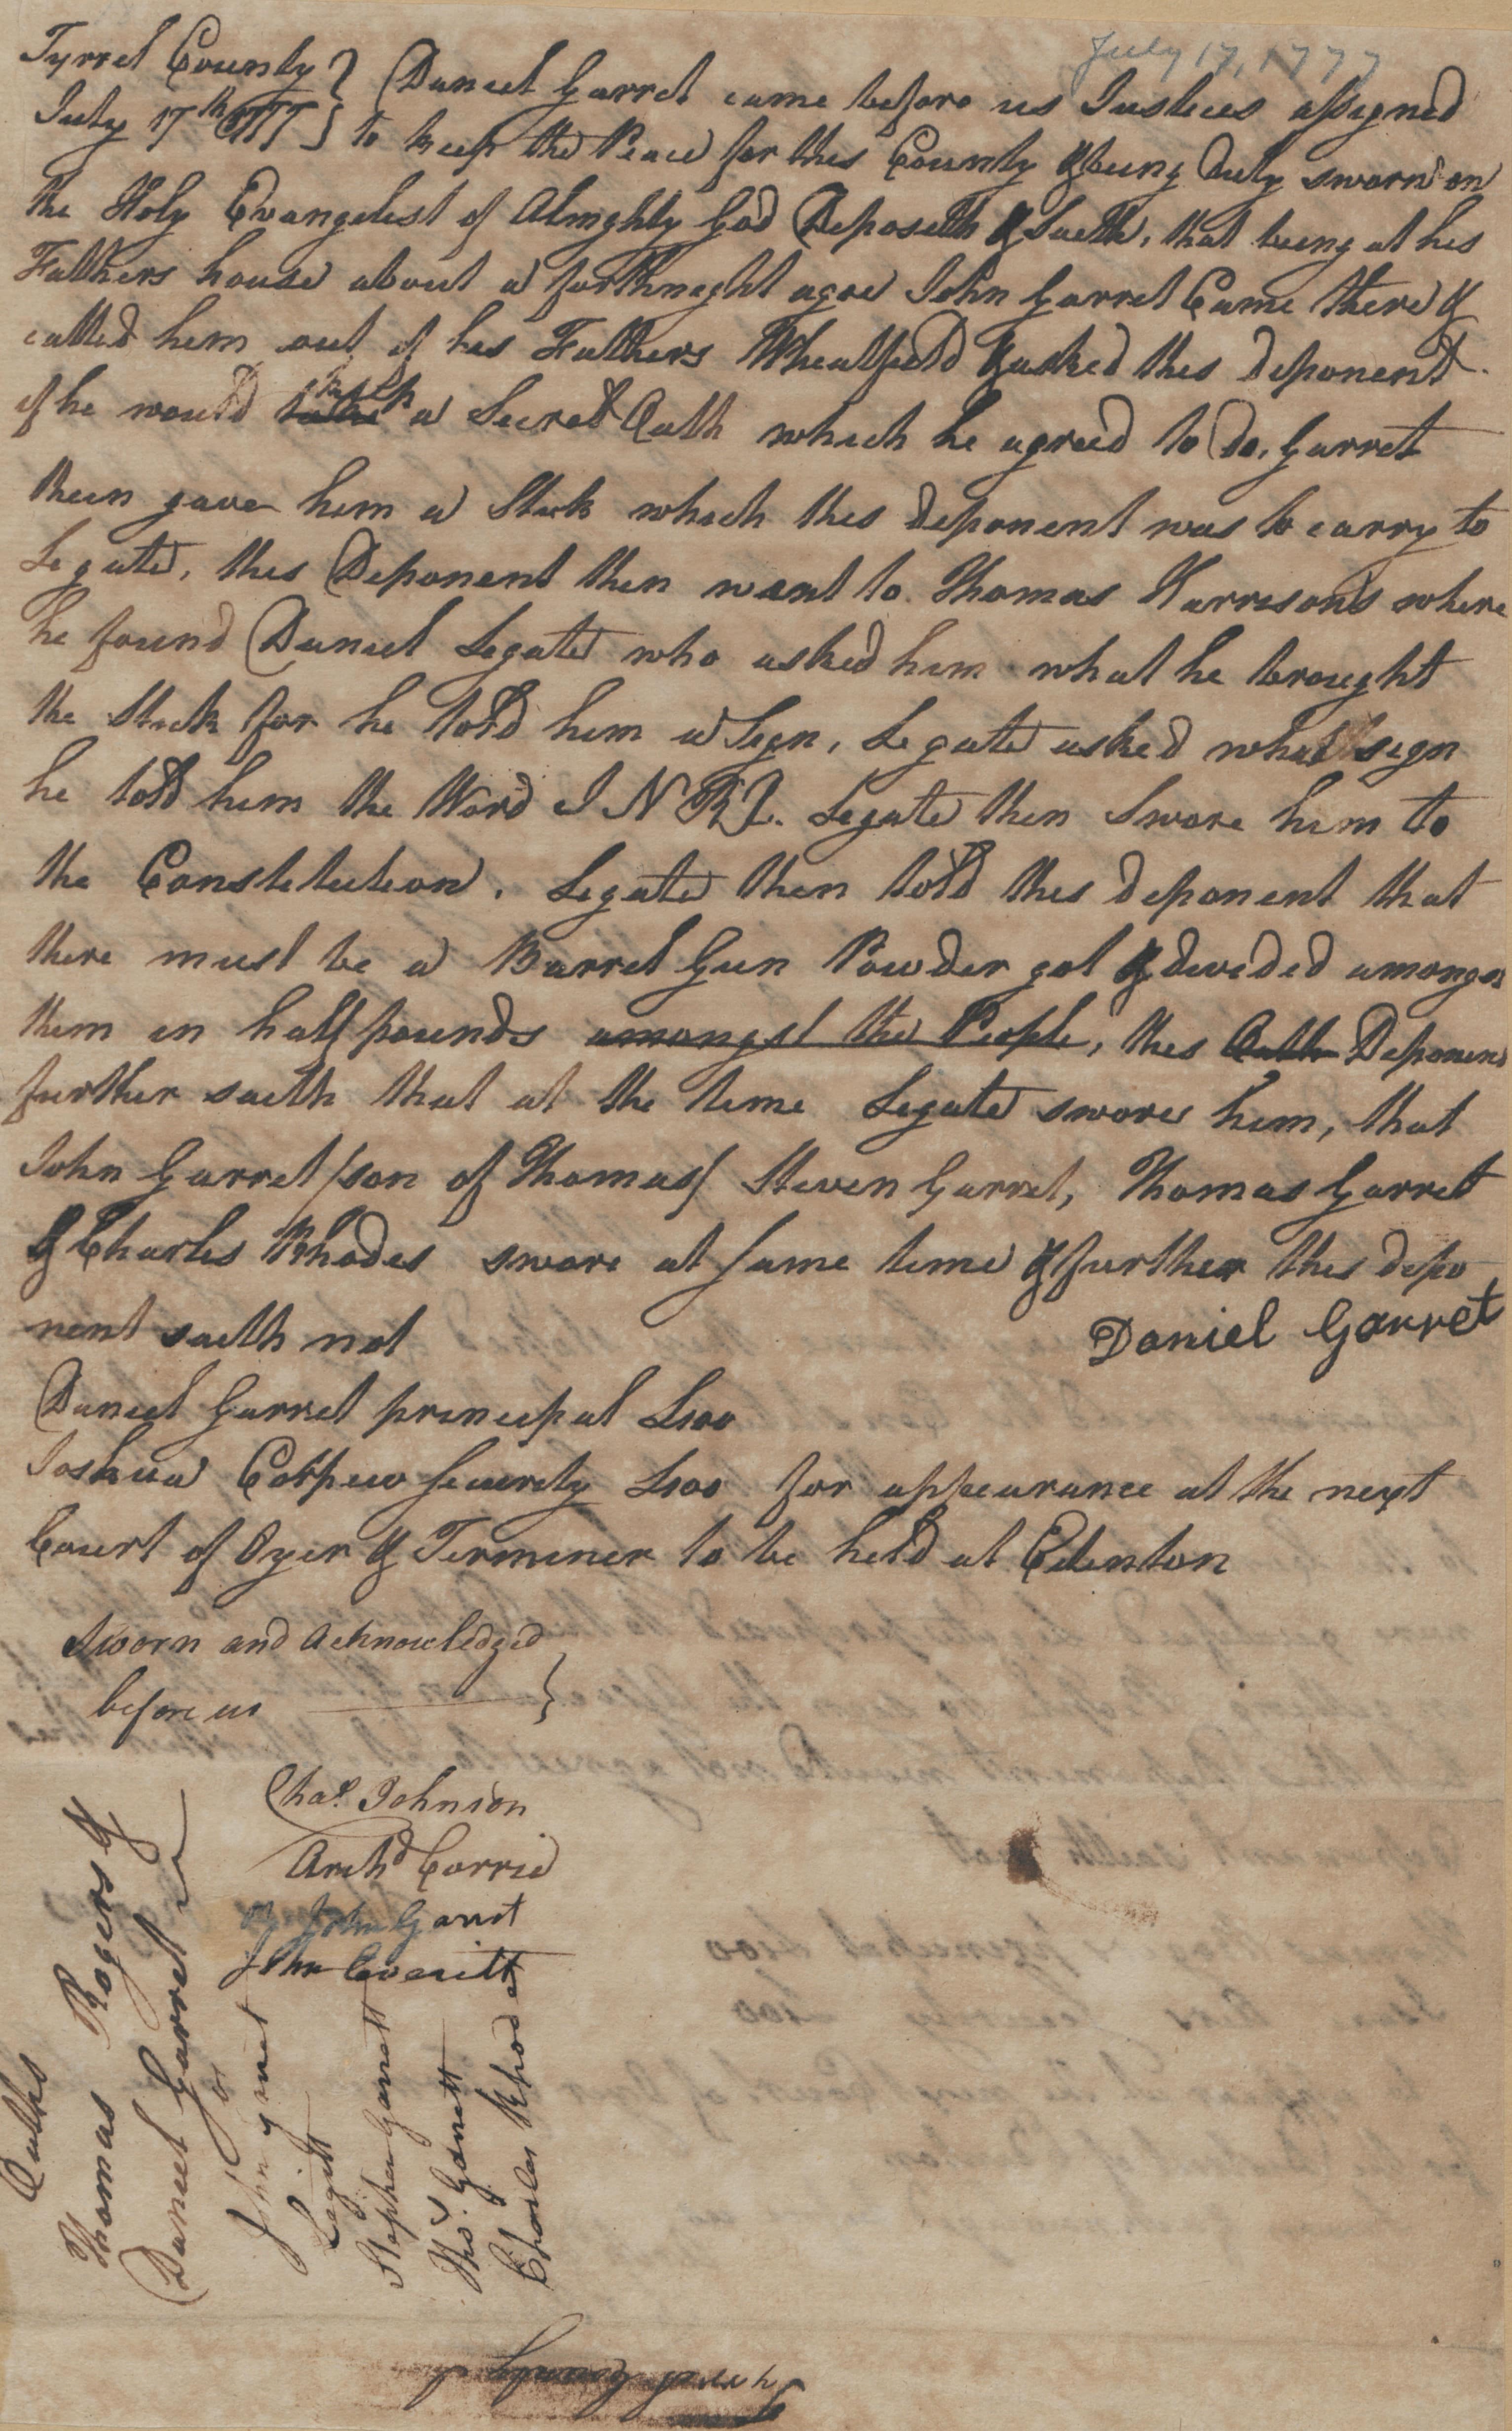 July 17, 1777
Tyrrel County } Daniel Garret came before us Justices assigned
July 17th 1777 } to keep the Peace for this County & being duly sworn on
the Holy Evangelist of Almighty God Deposeth & Saeth, that being at his
Fathers house about a forthnight agoe John Garret Came there &
called him out of his Fathers Wheatfield & asked this deponent
if he would take keep a Secret Oath which he agreed to do, Garret
then gave him a Stick which this deponent was to carry to
Legate, this Deponent then went to Thomas Harrisons where
he found Daniel Legate who asked him what he brought
the Stick for he told him a Sign, Legate asked what sign
he told him the Word I N R I. Legate then Swore him to
the Constitution. Legate then told this deponent that
there must be a Barrel Gun Powder got & devided amongst
them in half pounds amongst the People, this Oath Deponent
further saith that at the time Legate swore him, that
John Garret /son of Thomas/ Steven Garret, Thomas Garret
& Charles Rhodes swore at same time & further this depo
nent saith not
Daniel Garret
Daniel Garret principal £100
Joshua Corpew Security £100 for appearance at the next
Court of Oyer & Terminer to be held at Edenton
Sworn and Acknowledged
before us }
Chas. Johnson
Archd Corrie
John Garret
John Everitt
Oaths
Thomas Rogers &
Daniel Garret
John Garret
Legitt
Stephen Garrett
Tho. Garrett
Charles Rhodes